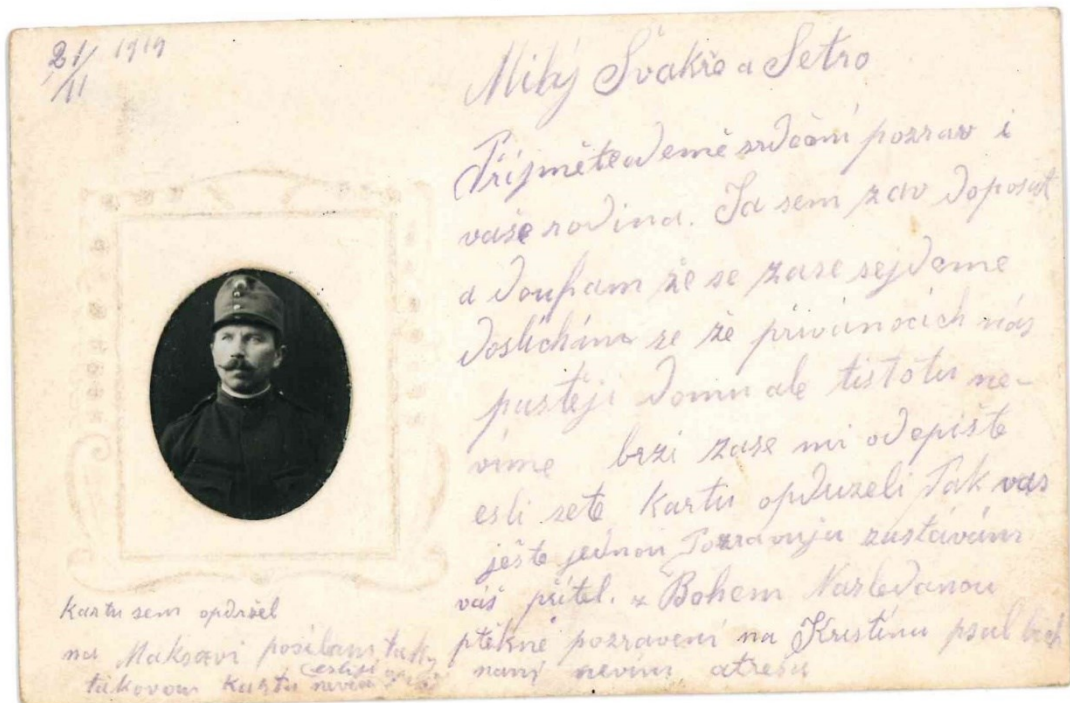 21/11 1919
Milý Švakře a Setro
Příjměteodemě srdění pozrav i
vaše rodina. Ja sem zdav doposut
a doufam že se zase sejdeme
doslíchám se že přivánocích nás
pustěji domu ale tistotu ne-
víme brzi zase mi odepište
esli sete kartu opdrzeli Tak vas
ještě jednou Pozdravuju zustávám
váš přítel. z Bohem Nasledanou
pěkné pozravení na Kristínu psal bich
naní nevím atresu
Kartu sem opdržel
na Maksovi posilam taky
takovou Kartu esliji